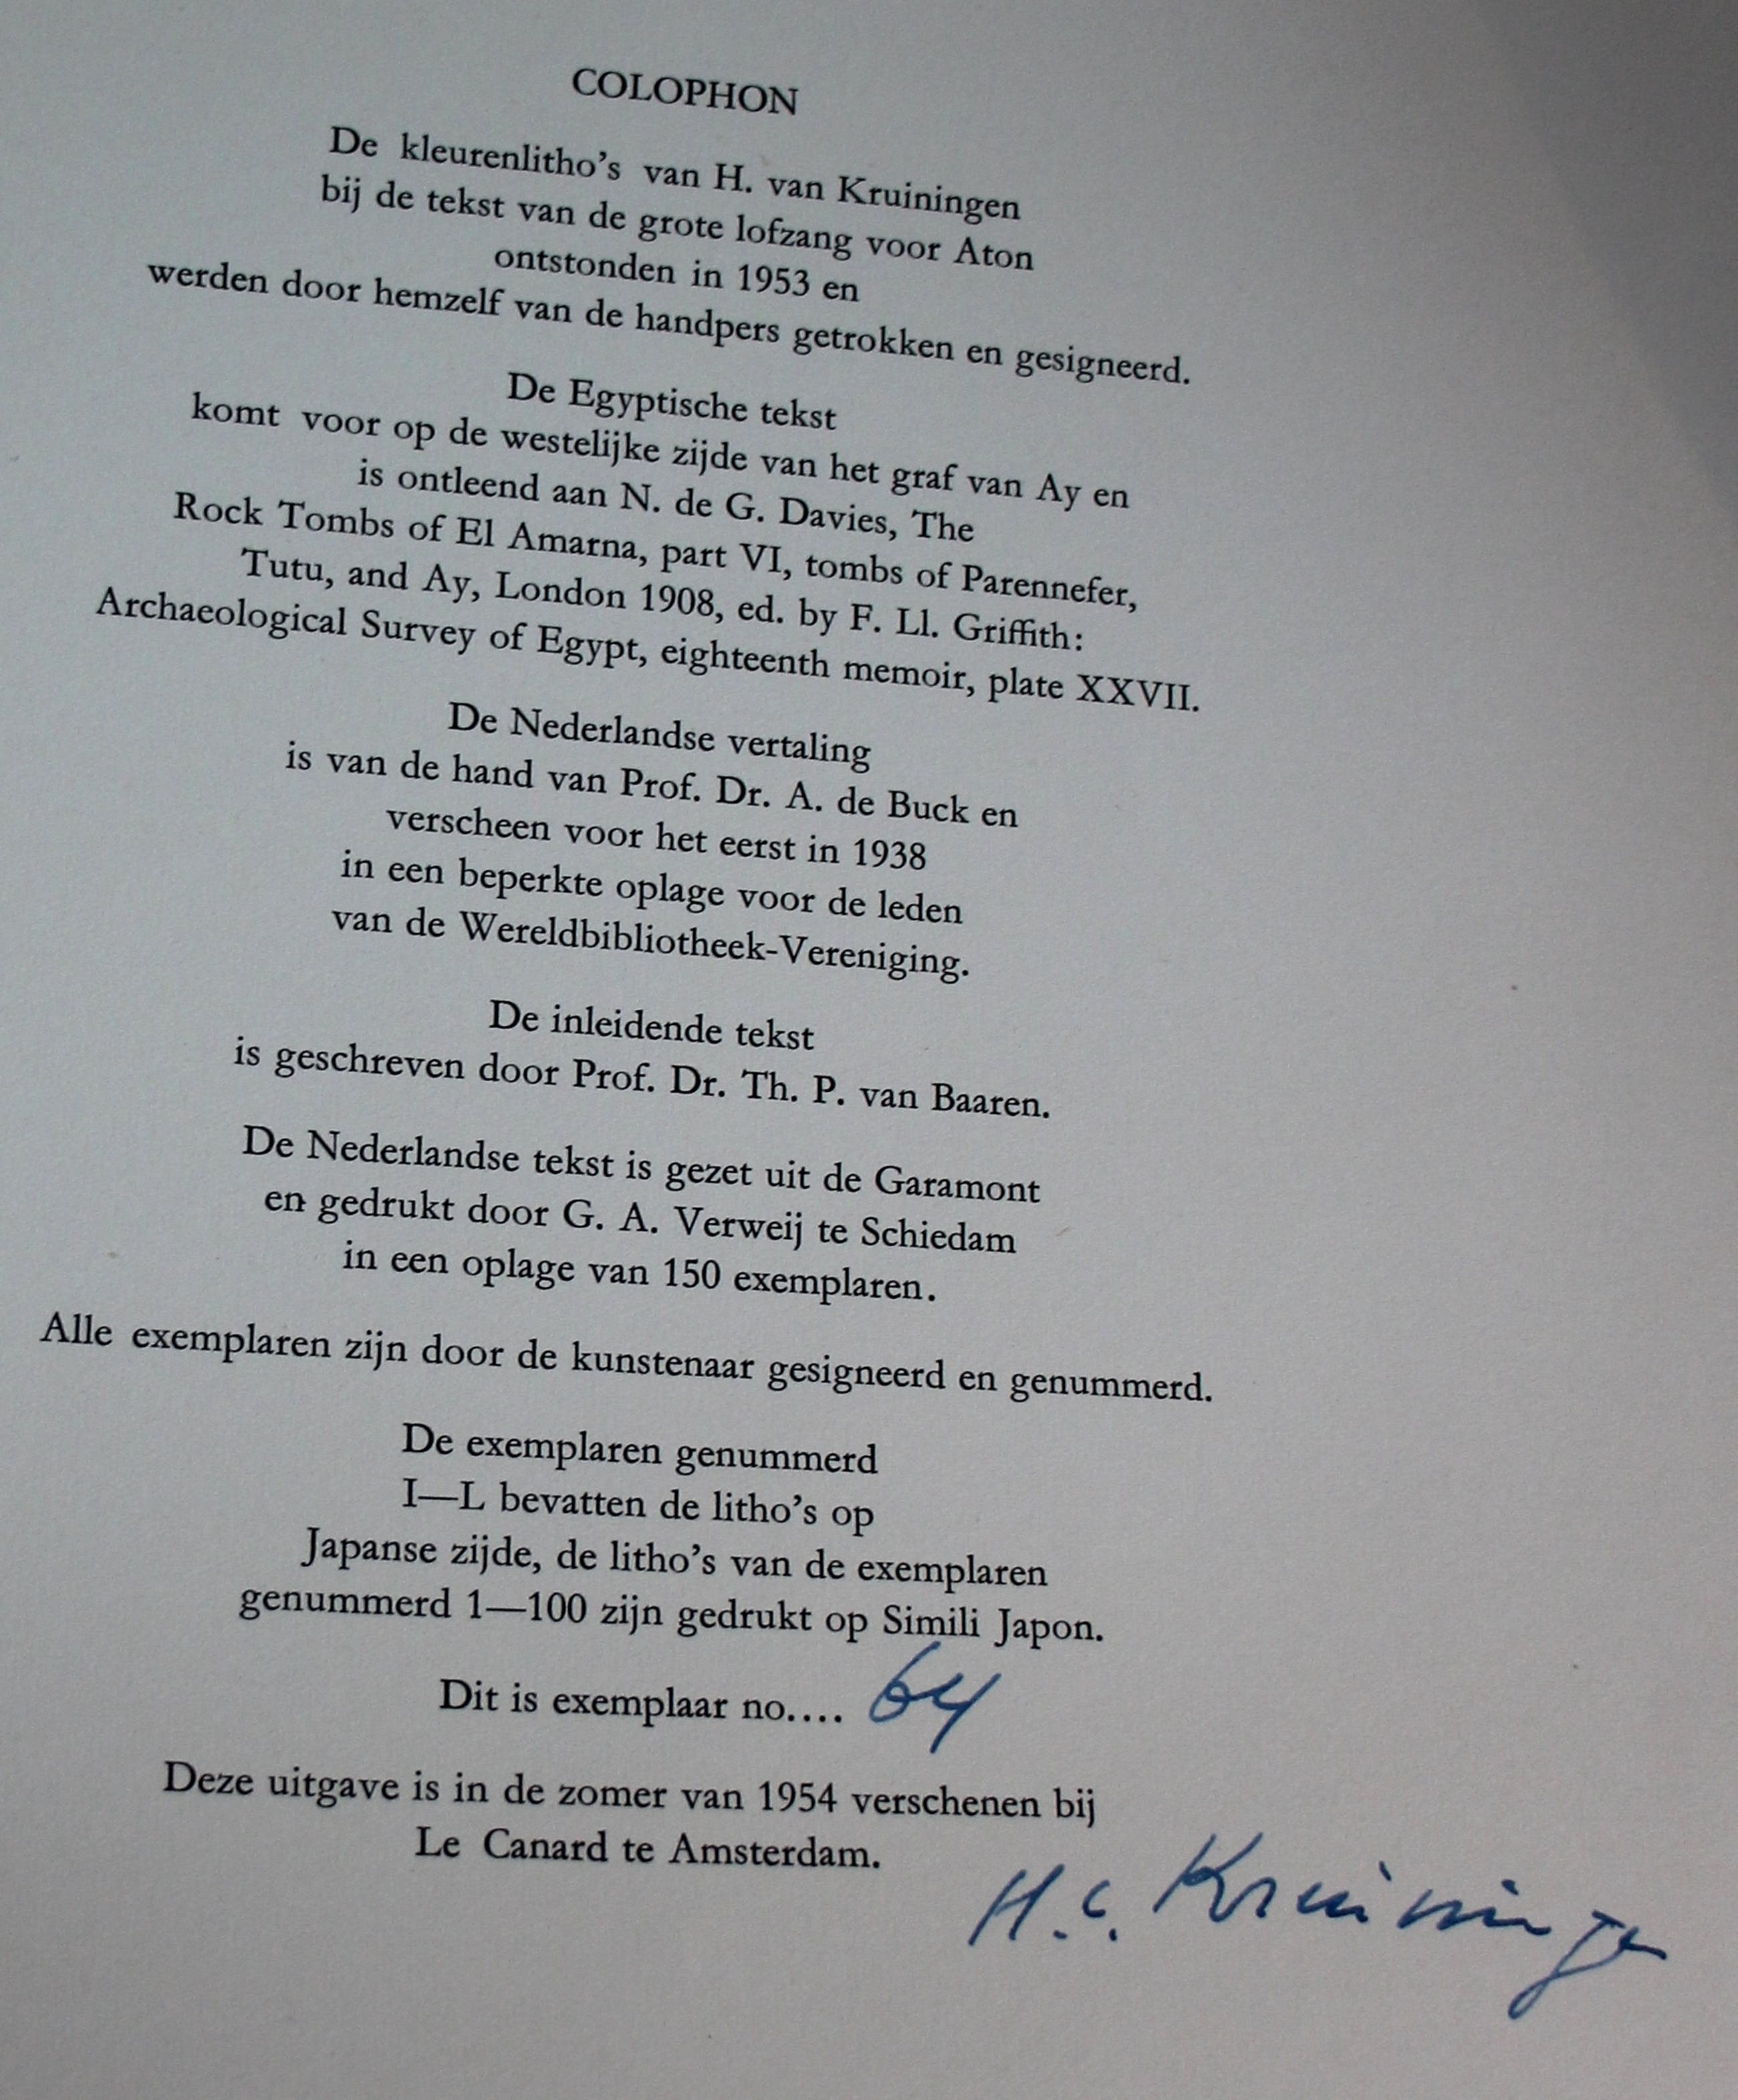 COLOPHON
De kleurenlitho's van H. van Kruiningen
bij de tekst van de grote lofzang voor Aton
ontstonden in 1953 en
werden door hemzelf van de handpers getrokken en gesigneerd.
De Egyptische tekst
komt voor op de westelijke zijde van het graf van Ay en
is ontleend aan N. de G. Davies, The
Rock Tombs of El Amarna, part VI, tombs of Parennefer,
Tutu, and Ay, London 1908, ed. by F. Ll. Griffith:
Archaeological Survey of Egypt, eighteenth memoir, plate XXVII.
De Nederlandse vertaling
is van de hand van Prof. Dr. A. de Buck en
verscheen voor het eerst in 1938
in een beperkte oplage voor de leden
van de Wereldbibliotheek-Vereniging.
De inleidende tekst
is geschreven door Prof. Dr. Th. P. van Baaren.
De Nederlandse tekst is gezet uit de Garamont
en gedrukt door G. A. Verweij te Schiedam
in een oplage van 150 exemplaren.
Alle exemplaren zijn door de kunstenaar gesigneerd en genummerd.
De exemplaren genummerd
I—L bevatten de litho's op
Japanse zijde, de litho's van de exemplaren
genummerd 1—100 zijn gedrukt op Simili Japon.
Dit is exemplaar no.... 64
Deze uitgave is in de zomer van 1954 verschenen bij
Le Canard te Amsterdam.